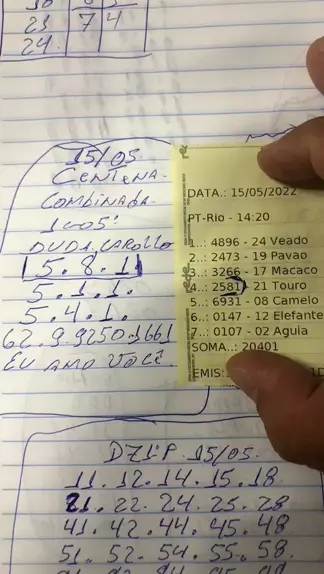 21 7 4
24.
15/05
CENTENA.
COMBINADA.
1005!
DUDA, CAROLLO
15.8.1
5.1.1.
5.4.1.
62.9.9250.1661
EU AMO VOCÊ.
DATA.: 15/05/2022
PT-Rio - 14:20
1..: 4896 - 24 Veado
2..: 2473 - 19 Pavao
3..: 3266 - 17 Macaco
4..: 2581 - 21 Touro
5..: 6931 - 08 Camelo
6..: 0147 - 12 Elefante
7..: 0107 - 02 Aguia
SOMA..: 20401
EMIS:
15/05.
11.12.14.15.18
21.22.24.25.28
41.42.44.45.48
51.52.54.55.58.